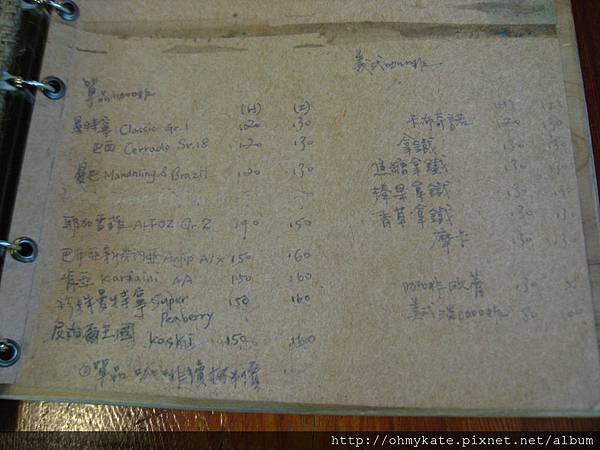 單品咖啡
(H) (I)
曼特寧 Classic Gr.1 120 130
巴西 Cerrado Sr.18 120 130
曼巴 Mandhling & Brazil 120 130
耶加雪菲 ALFOZ Gr.2 140 150
巴布亞新幾內亞 Anjip A/X 150 160
肯亞 Kardaini AA 150 160
珍珠曼特寧 Super Peaberry 150 160
尼泊爾王國 Kaski 150 160
單品咖啡續杯
義式咖啡
(H) (I)
卡布奇諾 120 130
拿鐵 130 130
焦糖拿鐵 130 130
榛果拿鐵 130 130
香草拿鐵 130 130
摩卡 130 130
咖啡歐蕾 130 X
義式濃 80 100
http://ohmykate.pixnet.net/album